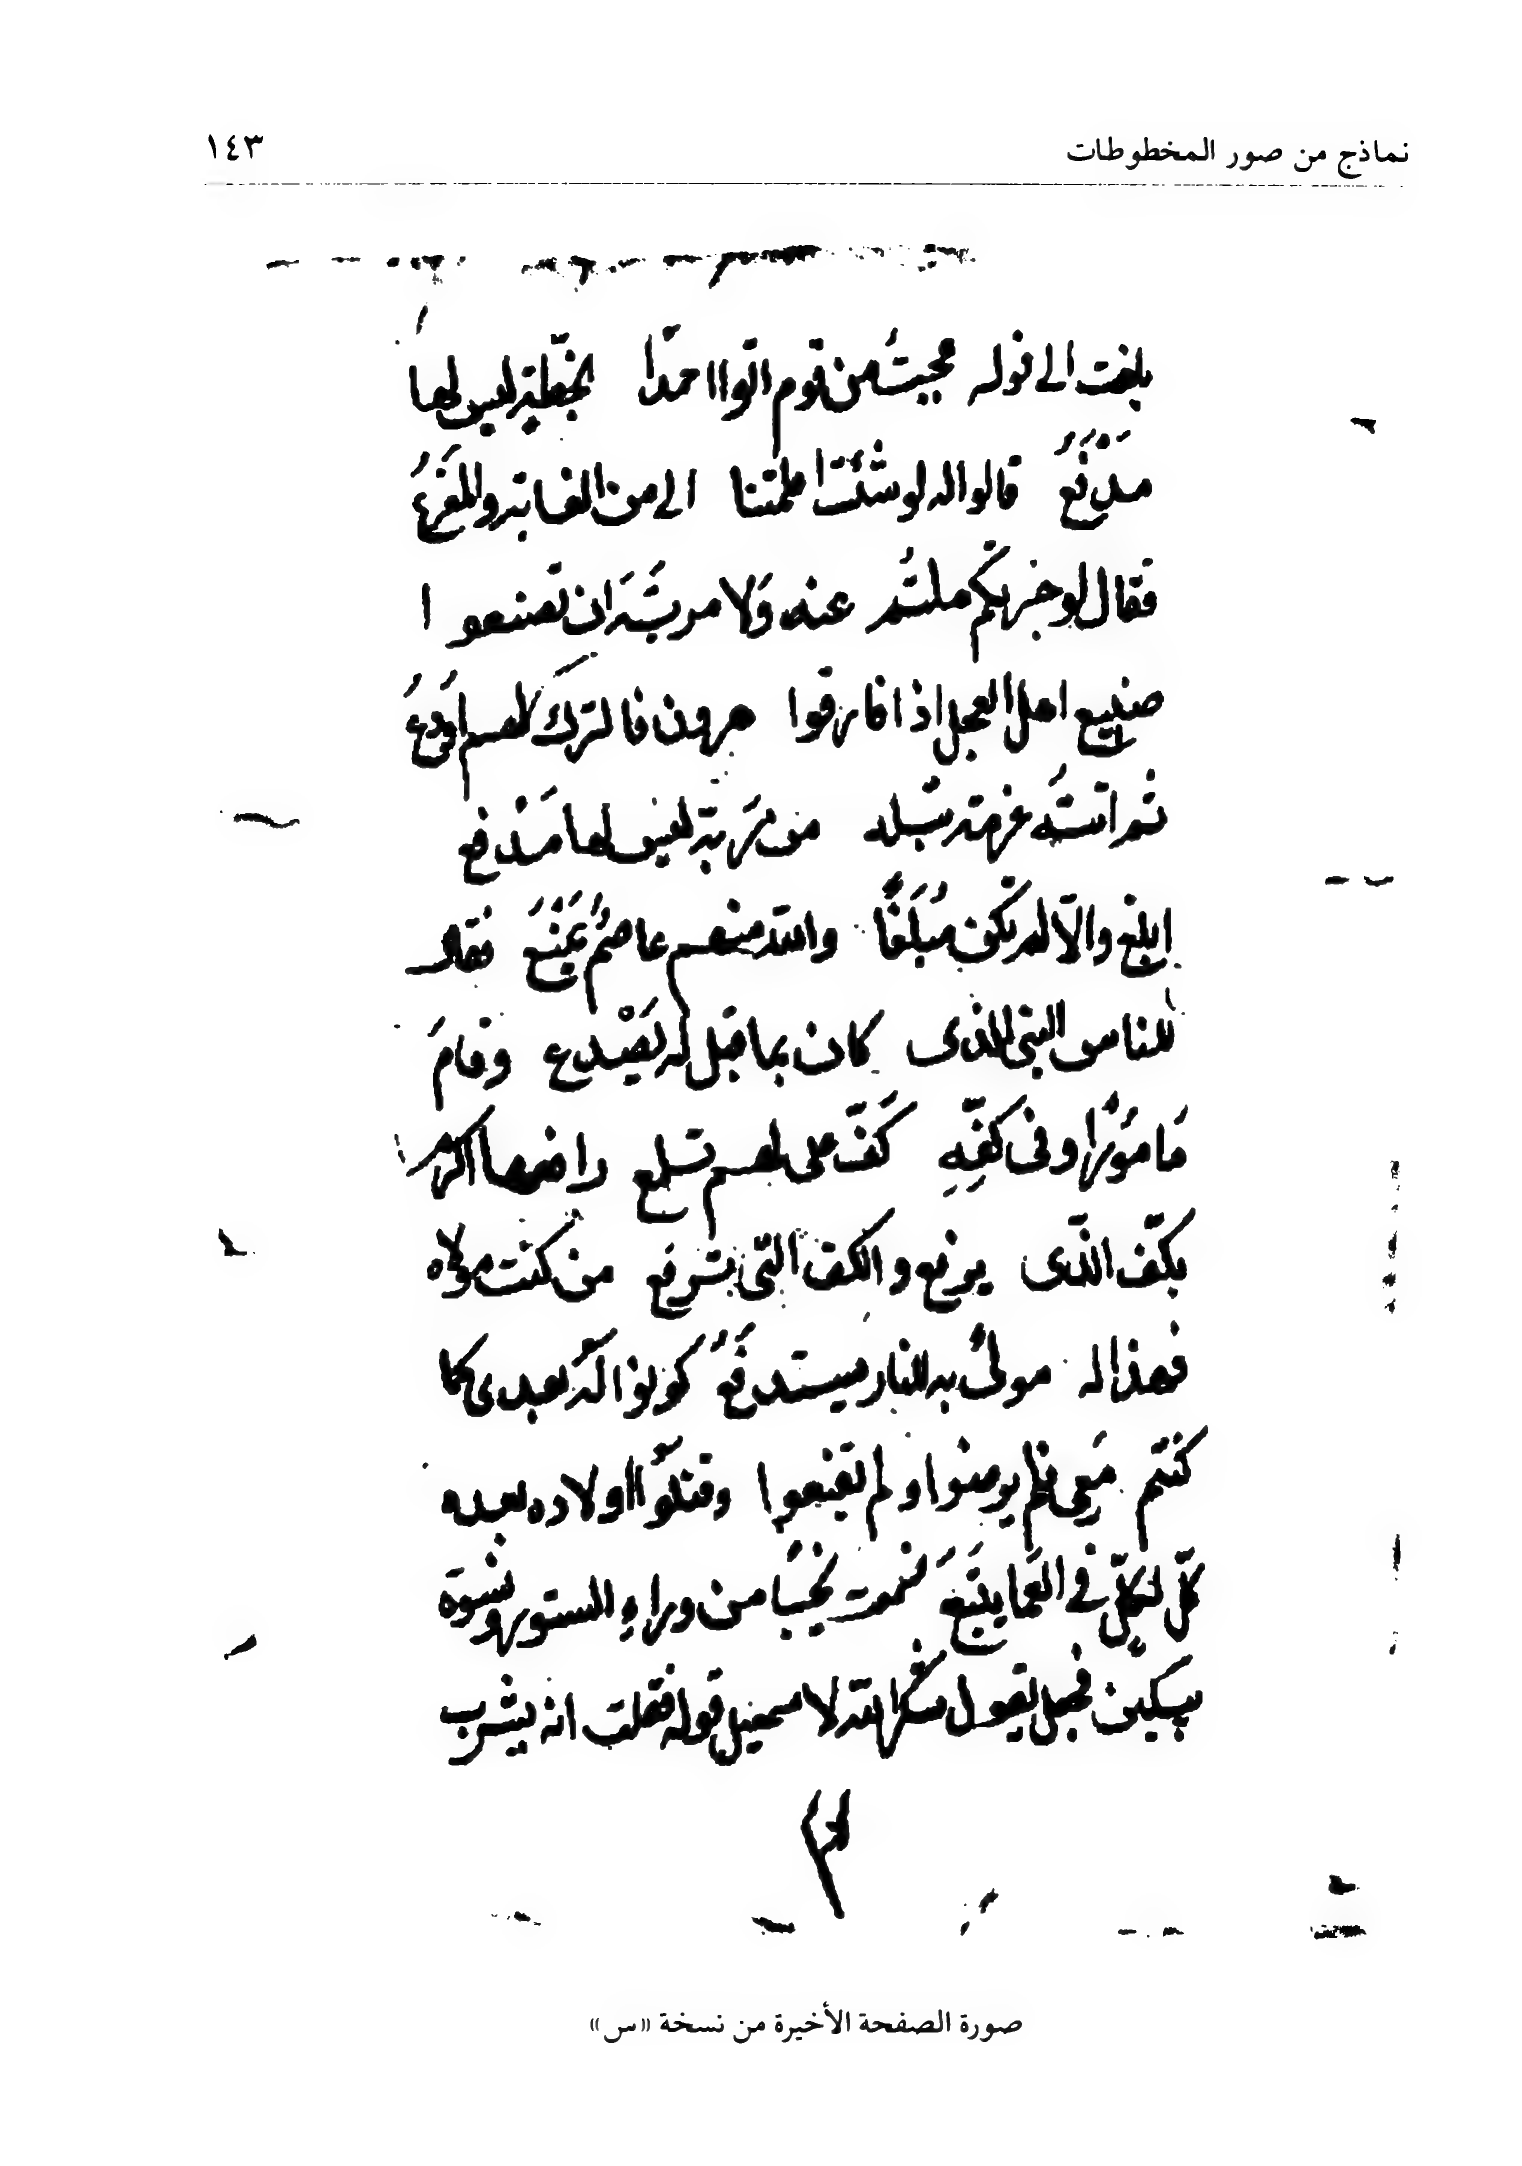 نماذج من صور المخطوطات ١٤٣
بلغت الى قوله عجبتُ من قوم اتوا احمدًا بخطّة ليس لها
مدفعُ قالوا له لو شئت اعلمتنا الى من الغاية والمفزعُ
فقال لو خبرتكم ملتُم عنه وَلا مريَّةَ ان تصنعوا
صنيع اهل العجل اذا فارقوا هرون فالترك لهم اودعُ
ثم اتتهُ عزمة من ربّه ليس لها مَدْفع
ابلغ والّا لم تكن مُبلَغًا والله منهم عاصمٌ يَمْنَعُ فقال
للناس النبي الذى كان بما قبل له يَصْدع وقامَ
مَامُورًا وفى كفّهِ كَفّ على لهم تلمع رافعها اكرم
بكفّ الذّى يرفع والكف التّى ترفع من كنت مولاه
فهذا له مولىً للنار سيستدفَعُ كونوا له بعدى كما
كنتم مَعِى فلم يرضوا ولم تقنعوا وقتلُوا اولاده بعده
كلّ لكلّ فى العَما يتبَعَ نحيبًا من وراءِ الستور ونسوة
يبكين فجعل يقول شكرا لله لاسمعيل قوله فقلت انه يشرب
صورة الصفحة الأخيرة من نسخة «س»